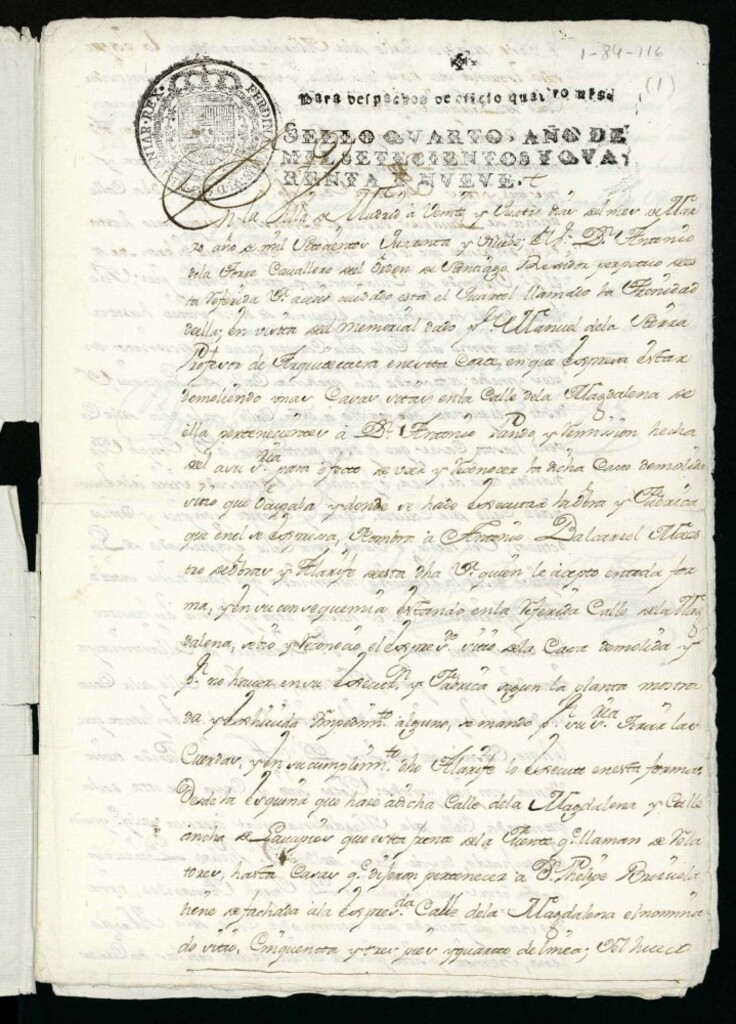 1-84-116
(1)
HISPANIAR·REX· FERDIN
Para despachos de oficio quatro mrs.
SELLO QVARTO, AÑO DE
MIL SETECIENTOS Y QVA,
RENTA Y NVEVE.
En la Villa de Madrid à Veinte y días del mes de Mar
zo año de mil Setecientos Quarenta y Nuebe; el Sr. Dn. Antonio
dela Torre Cavallero del Orden de Santiago, Rexidor perpetuo de es
ta referida Va. à cuio cuidado està el Quartel llamado la Trinidad
de ella; en vista del memorial dado pr. Manuel dela
Profesor de Arquitectura en esta Corte, en que expresa estar
demoliendo unas Casas sitas en la Calle dela Magdalena de
ella pertenecientes à Dn. Antonio Pando, y remision hecha
del a su Sria. para efecto de ver y reconocer la dicha Casa demolida
sitio que Ocupaba y donde se hade executar la obra y Fabrica
que en el se expresa, Nombra à Antonio Balcarcel Maes
tro de Obras y Alarife de esta dha Va. quien le acepto en toda for
ma, y en su consequencia estando en la referida Calle dela Mag
dalena, vio y reconocio, el expresdo. sitio dela Casa demolida y
pr. no hacer en su execuon. y Fabrica segun la planta mostra
da y exhivida Impedimto. alguno, se mando pr. su Sria. tirar las
Cuerdas, y en su cumplimto. dho Alarife lo executo en esta forma:
Desde la esquina que hace à dicha Calle dela Magdalena y Calle
ancha de Lavapies que esta frente dela Fuente qe. llaman de Rela
tores, hasta Casas qe. dijeron pertenecer à Dn. Phelipe
tiene de fachada à la expresda. Calle dela Magdalena el nomina
do sitio, Cinquentta y tres pies y quarto de linea; del